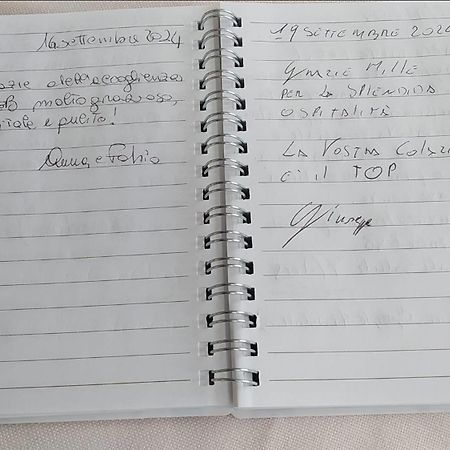 16 settembre 2024
dell'accoglienza
B&B molto grazioso,
e pulito!
Anna e Fabio
19 SETTEMBRE 202
GRAZIE MILLE
PER LA SPLENDIDA
OSPITALITÀ
LA VOSTRA COLAZI
È IL TOP
Giusep